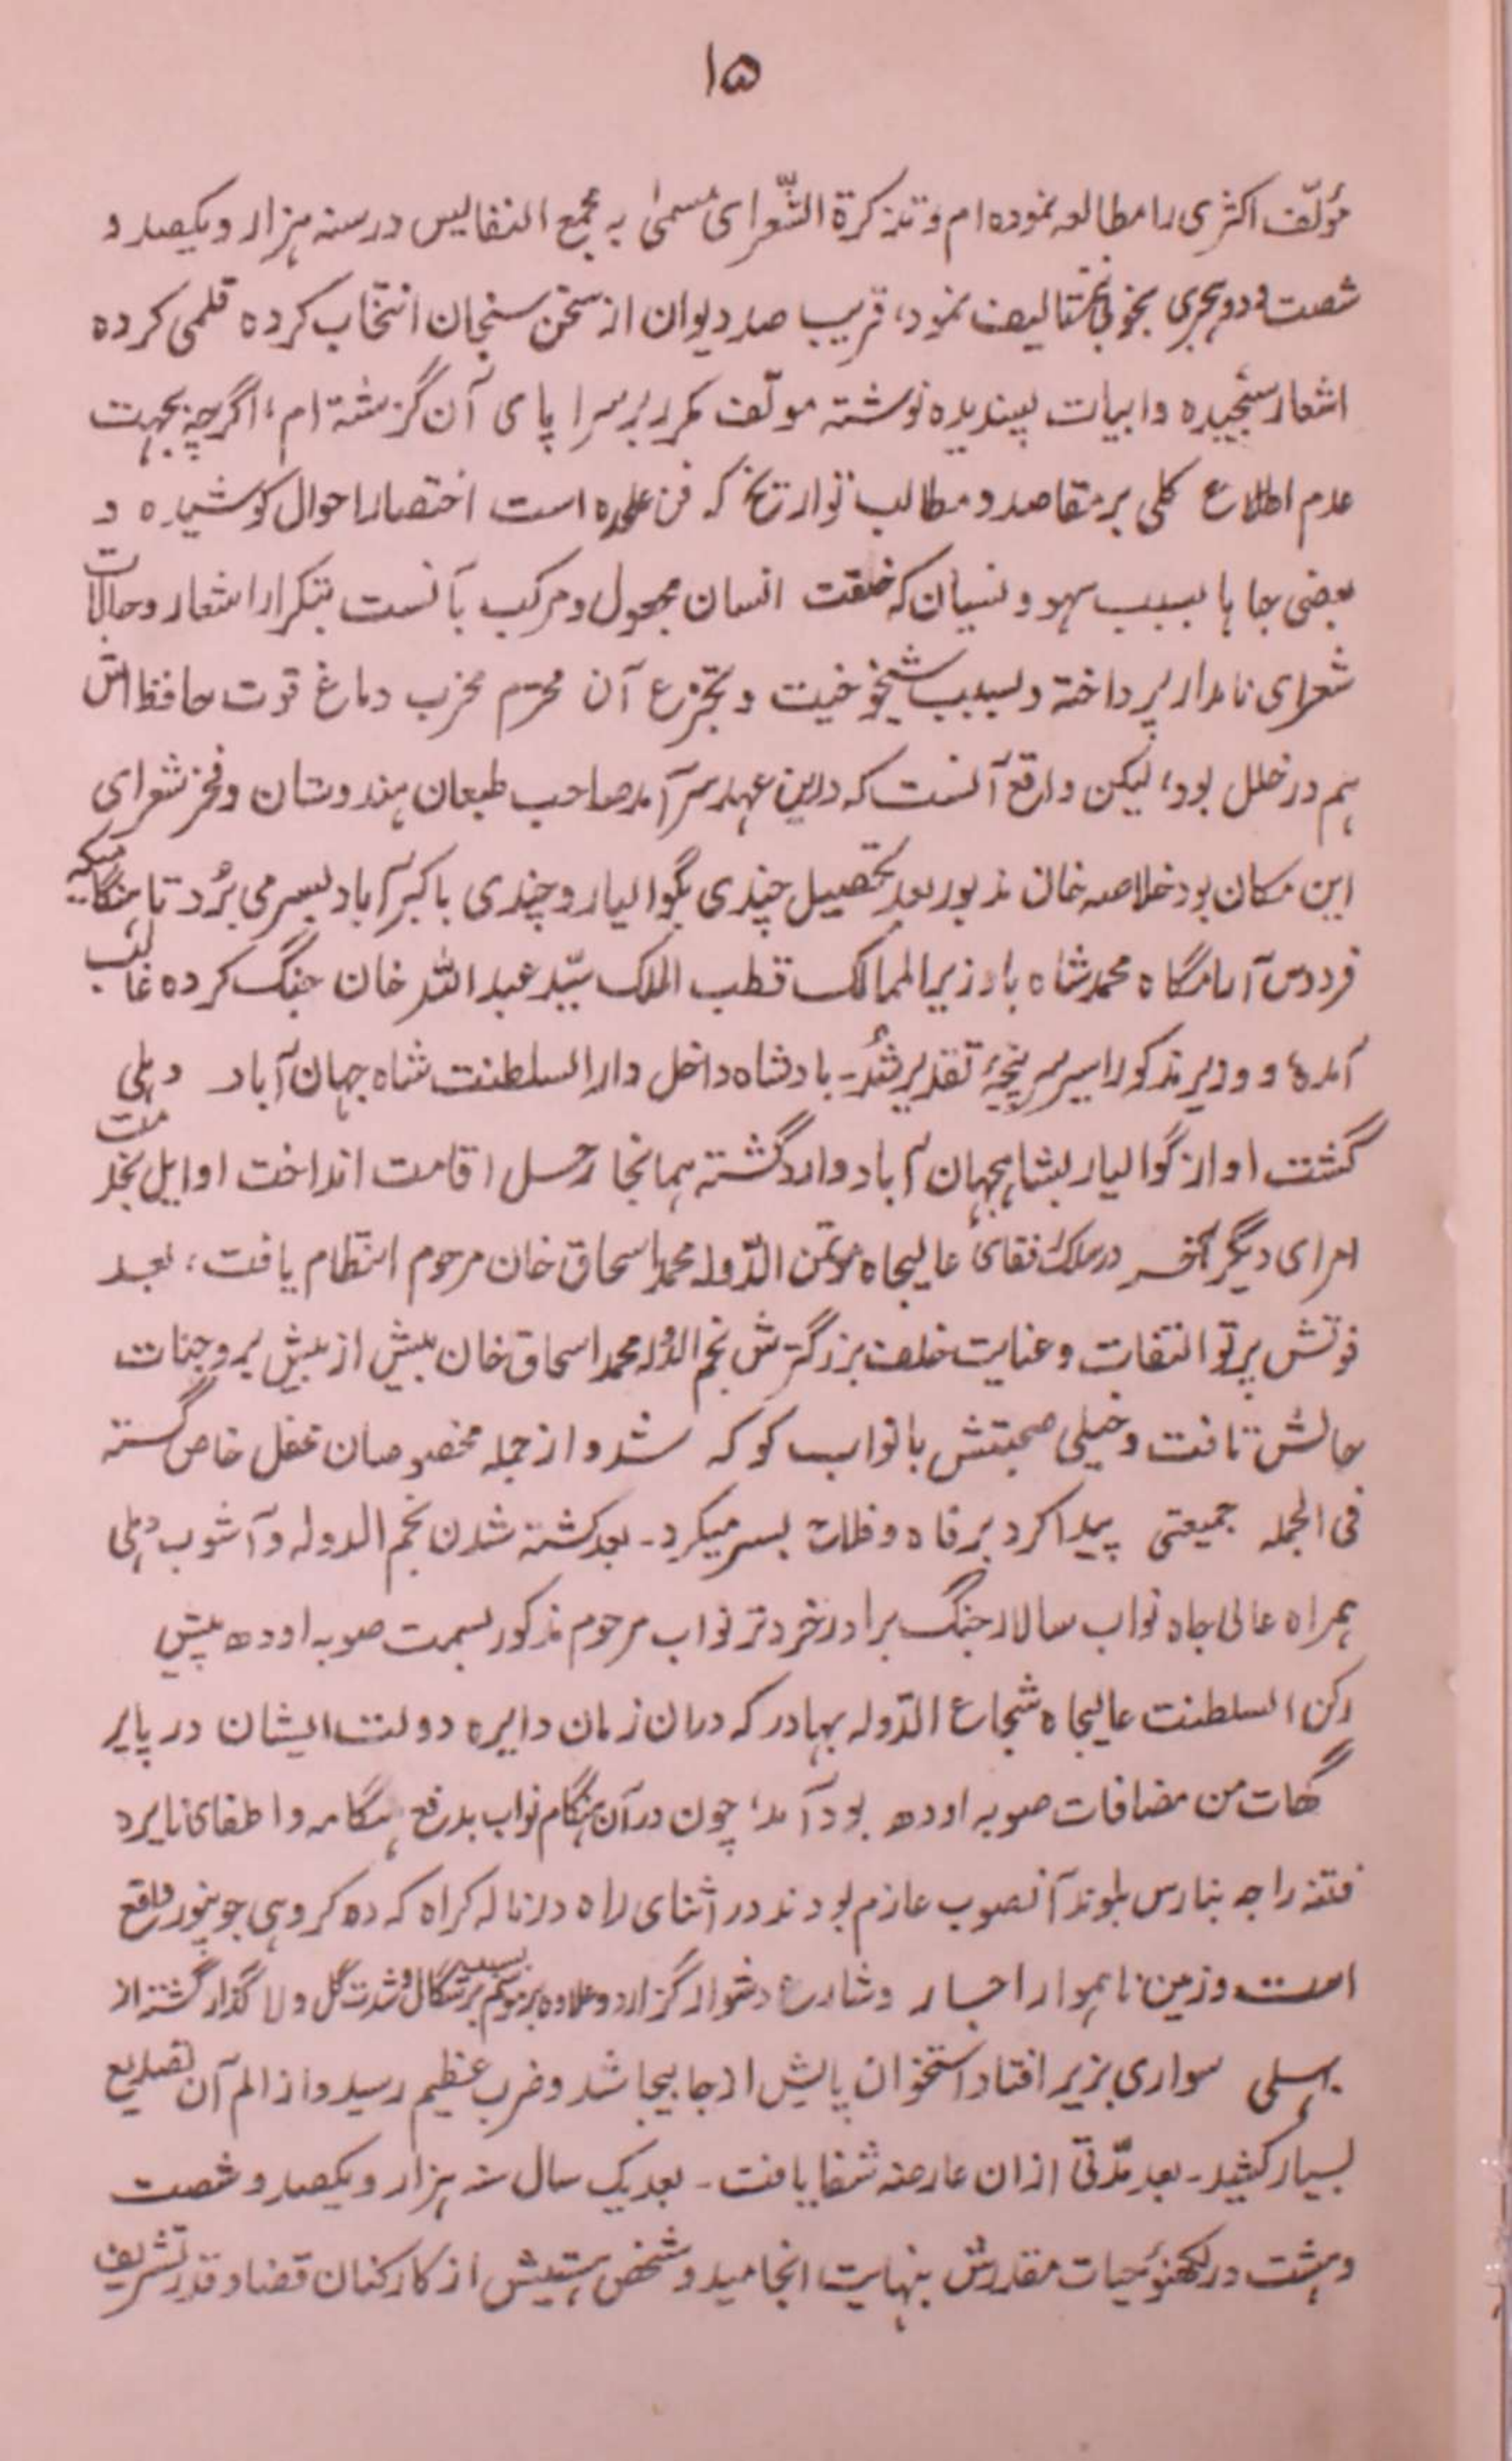 ۱۵
مؤلّف اکثری را مطالعه نموده ام و تذکرة الشّعرای مسمیٰ به مجمع النفالیس در سنه هزار و یکصد و
شصت و دو هجری بخوبی تالیف نمود، قریب صد دیوان از سخن سنجان انتخاب کرده قلمی کرده
اشعار سنجیده و ابیات پسندیده نوشته مولّف مکرر بر سرا پای آن گزشته ام، اگرچه بجهت
عدم اطلاع کلی بر مقاصد و مطالب تواریخ که فن علحده است اختصار احوال کوشیده و
بعضی جا ها بسبب سهو و نسیان که خلقت انسان مجبول و مرکب بآنست بتکرار اشعار و حالات
شعرای نامدار پرداخته و بسبب شیخوخیت و تجزع آن محرم مخرب دماغ قوت حافظه اش
هم در خلل بود، لیکن واقع آنست که درین عهد سرآمد صاحب طبعان هندوستان و فخر شعرای
این مکان بود خلاصه خان مذبور بعد تحصیل چندی بگوالیار و چندی باکبرآباد بسر می بُرد تا هنگامیکه
فردوس آرامگاه محمد شاه با وزیر الممالک قطب الملک سیّد عبد الله خان جنگ کرده غالب
آمده و وزیر مذکور اسیر سر پنجهٔ تقدیر شُد۔ بادشاه داخل دارالسلطنت شاه جهان آباد دهلی
گشت او از گوالیار بشاهجهان آباد وارد گشته همانجا رحل اقامت انداخت اوایل بخدمت
امرای دیگر آخر در سلک رفقای عالیجاه مؤتمن الدّوله محمد اسحاق خان مرحوم انتظام یافت، بعد
فوتش پرتو التفات و عنایت خلف بزرگترش نجم الدوله محمد اسحاق خان بیش از بیش بر وجنات
حالش تافت و خیلی صحبتش با نواب کوکه شد و از جمله مخصوصان محفل خاص گسته
فی الجمله جمیعتی پیدا کرد برفاه و فلاح بسر میکرد۔ بعد کشته شدن نجم الدوله و آشوب دهلی
همراه عالی جاه نواب سالار جنگ برادر خردتر نواب مرحوم مذکور بسمت صوبه اودھ پیش
رکن السلطنت عالیجاه شجاع الدّوله بهادر که دران زمان دایره دولت ایشان در پاپر
گھات من مضافات صوبه اودھ بود آمد، چون در آن هنگام نواب بدفع هنگامه و اطفای نایره
فتنه راجه بنارس بلوند آنصوب عازم بودند در اثنای راه در ناله کراه که ده کروهی جونپور واقع
است و زمین ناهموار بسیار و شارع دشوار گزار دارد و علاوه بر موسم برشگال و شدت گل و لا گذار گشته از
بہلی سواری بزیر افتاد استخوان پایش از جا بیجا شد و ضرب عظیم رسید و از الم آن تصدیع
بسیار کشید۔ بعد مدّتی ازان عارضه شفا یافت۔ بعد یک سال سنه هزار و یکصد و شصت
و هشت در لکھنؤ حیات مقدرش بنهایت انجامید و شخص هستیش از کارکنان قضا و قدر تشریف